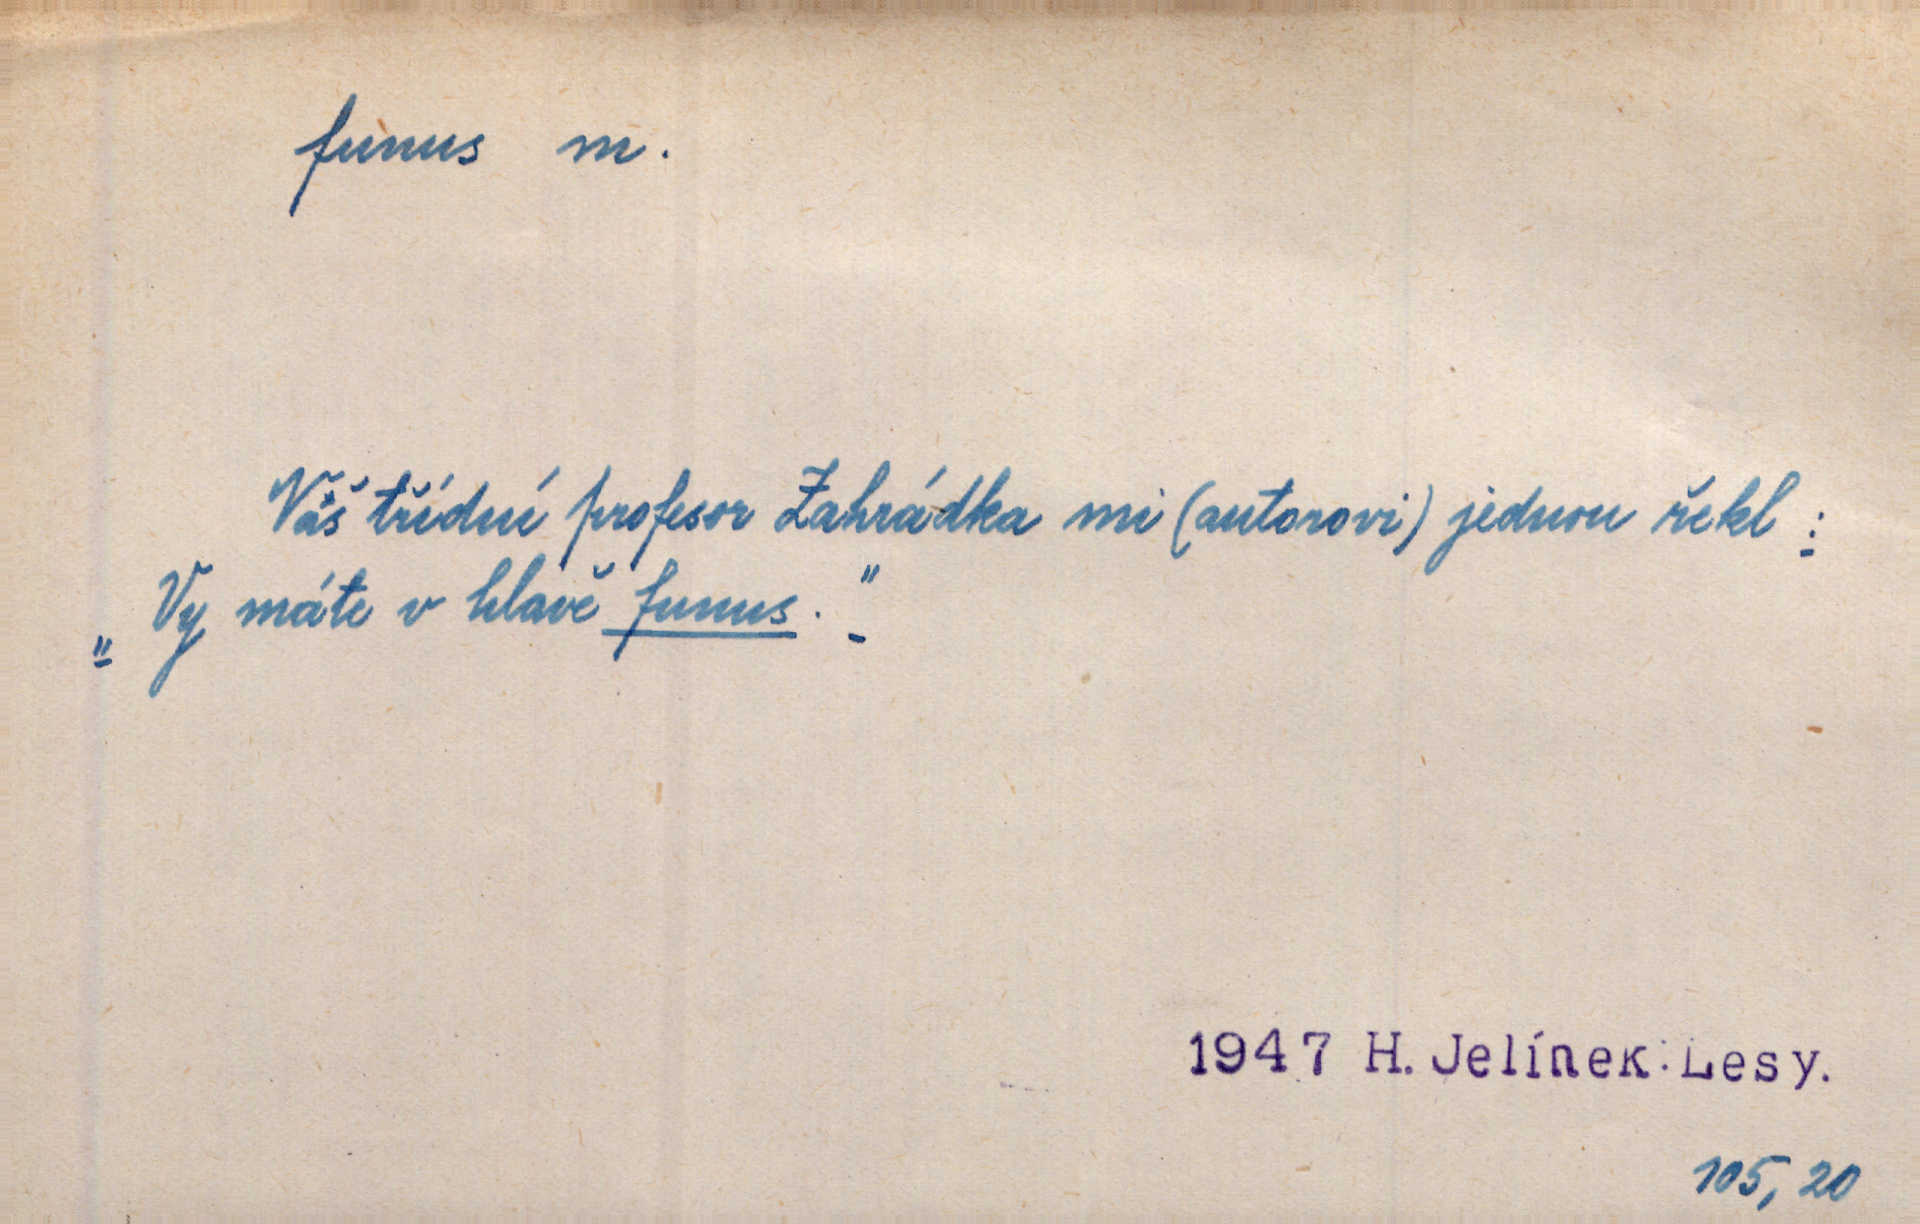 funus m.
Váš třídní profesor Zahrádka mi (autorovi) jednou řekl :
„ Vy máte v hlavě funus. "
1947 H. Jelínek: Lesy.
105, 20